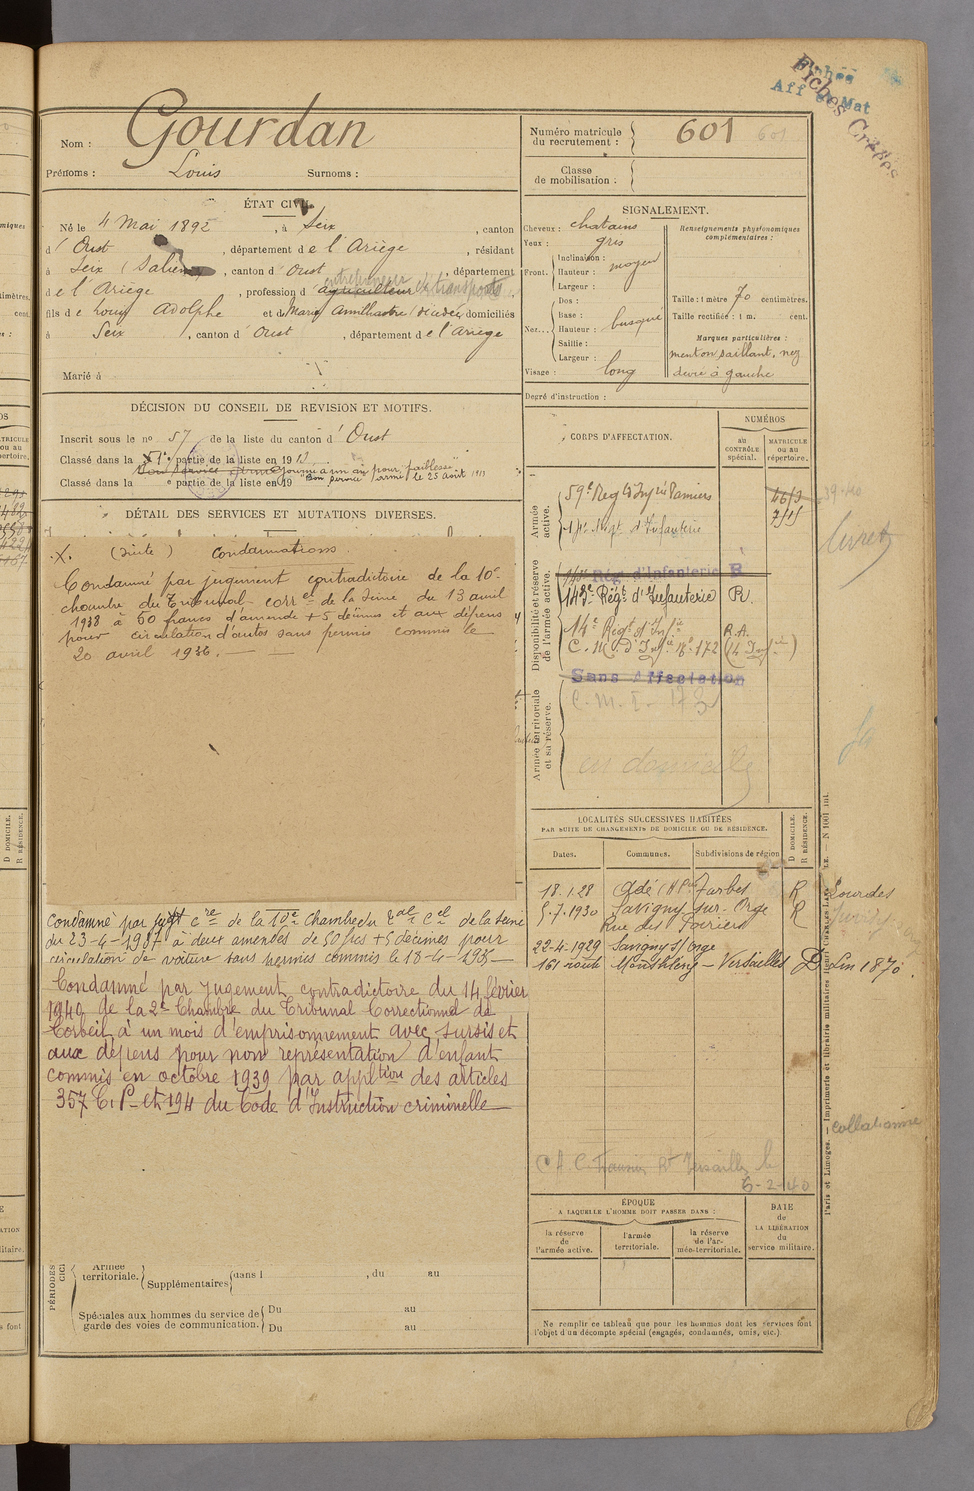 Fichés
Aff Mat
Fiches Créées
Nom : Gourdan
Prénoms : Louis Surnoms :
Numéro matricule du recrutement : 601 601
Classe de mobilisation :
ÉTAT CIVIL.
Né le 4 Mai 1892, à Seix, canton
d' Oust, département de l'Ariège, résidant
à Seix (Salien), canton d'Oust, département
de l'Ariège, profession d'agriculteur entrepreneur de transports
fils de Louis Adolphe et de Marie (décédée) domiciliés
à Seix, canton d'Oust, département de l'Ariège
Marié à
SIGNALEMENT.
Cheveux : chatains
Yeux : gris
Front. Inclinaison :
Hauteur : moyen
Largeur :
Nez... Dos :
Base :
Hauteur : busqué
Saillie :
Largeur :
Visage : long
Renseignements physionomiques complémentaires :
Taille : 1 mètre 70 centimètres.
Taille rectifiée : 1 m. cent.
Marques particulières :
menton saillant, nez
dévié à gauche
Degré d'instruction :
DÉCISION DU CONSEIL DE REVISION ET MOTIFS.
Inscrit sous le n° 57 de la liste du canton d'Oust
Classé dans la 5e partie de la liste en 1912
Bon service armé ajourné à un an pour faiblesse
Classé dans la e partie de la liste en 19 "Bon service armé" le 25 août 1913
DÉTAIL DES SERVICES ET MUTATIONS DIVERSES.
.X. (suite) Condamnations.
Condamné par jugement contradictoire de la 10e
chambre du Tribunal correl de la Seine du 13 avril
1938 à 50 francs d'amende + 5 décimes et aux dépens
pour circulation d'autos sans permis commis le
20 avril 1936.
Condamné par jugt cre de la 10e Chambre du Tal Cel de la Seine
du 23-4-1937 à deux amendes de 50 frcs + 5 décimes pour
circulation de voiture sans permis commis le 18-4-193
Condamné par jugement contradictoire du 14 février
1940 de la 2e Chambre du Tribunal Correctionnel de
Corbeil, à un mois d'emprisonnement avec sursis et
aux dépens pour non représentation d'enfant
commis en octobre 1939 par appltion des articles
357 C. P. et 194 du Code d'Instruction criminelle
CORPS D'AFFECTATION.
NUMÉROS
au CONTRÔLE spécial.
MATRICULE ou au RÉPERTOIRE.
Armée active.
59e Regt d'Infie Pamiers
Regt d'Infanterie
Disponibilité et réserve de l'armée active.
143e Rég. d'Infanterie B
143e Régt d'Infanterie R.
14e Régt d'Infie R.A.
C. M. d'Infie No 172 (14 Infie)
Armée territoriale et sa réserve.
Sans Affectation
C. M. I. 173
en domicile
livret
LOCALITÉS SUCCESSIVES HABITÉES
PAR SUITE DE CHANGEMENTS DE DOMICILE OU DE RÉSIDENCE.
Dates. Communes. Subdivisions de région
D DOMICILE.
R RÉSIDENCE.
18.1.28 Adé (H.P.) Tarbes R Lourdes
5.7.1930 Savigny sur-Orge R
Rue des Poiriers
22-4-1929 Savigny s/Orge
161 route Montlhéry — Versailles D Lin 1870.
collationné
Versailles le
6-2-40
ÉPOQUE
A LAQUELLE L'HOMME DOIT PASSER DANS :
la réserve de l'armée active.
l'armée territoriale.
la réserve de l'armée-territoriale.
DATE de LA LIBÉRATION du service militaire.
PÉRIODES
Armée territoriale. Supplémentaires dans l , du au
Spéciales aux hommes du service de garde des voies de communication. Du au
Du au
Ne remplir ce tableau que pour les hommes dont les services font
l'objet d'un décompte spécial (engagés, condamnés, omis, etc.)